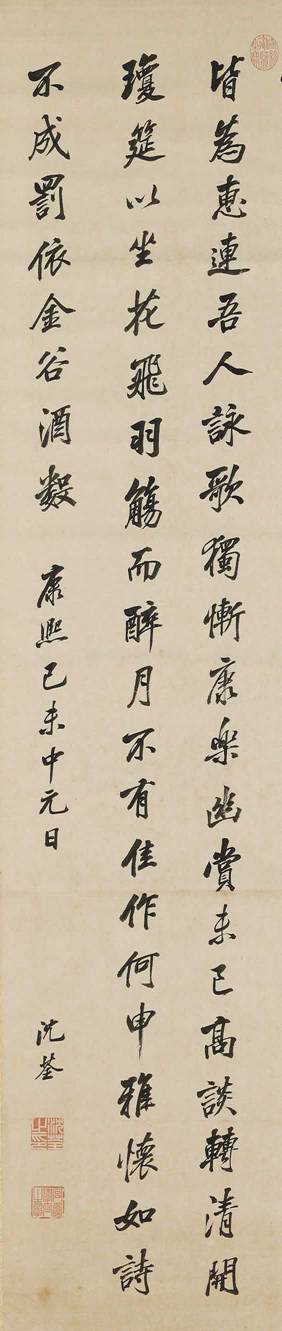 皆為惠連吾人詠歌獨慚康樂幽賞未已高談轉清開
瓊筵以坐花飛羽觴而醉月不有佳作何申雅懷如詩
不成罰依金谷酒數
康熙己未中元日
沈荃